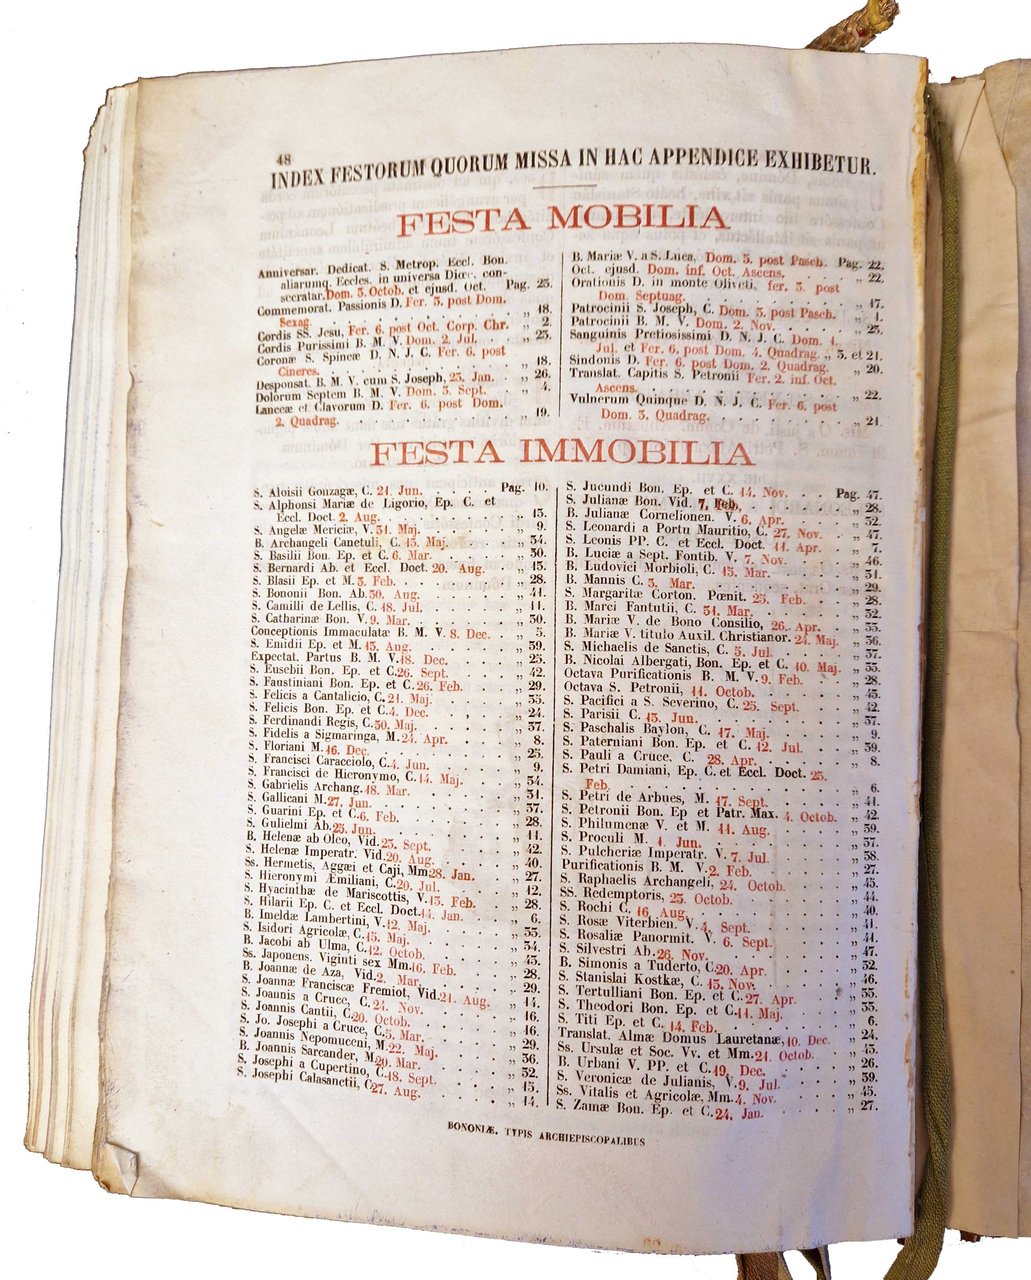 48
INDEX FESTORUM QUORUM MISSA IN HAC APPENDICE EXHIBETUR.
FESTA MOBILIA
Anniversar. Dedicat. S. Metrop. Eccl. Bon.
aliarumq. Eccles. in universa Diœc. con-
secratar. Dom. 3. Octob. et ejusd. Oct. Pag. 25.
Commemorat. Passionis D. Fer. 3. post Dom.
Sexag. „ 18.
Cordis SS. Jesu, Fer. 6. post Oct. Corp. Chr. „ 2.
Cordis Purissimi B. M. V. Dom. 2. Jul. „ 25.
Coronæ S. Spineæ D. N. J. C. Fer. 6. post
Cineres. „ 18.
Desponsat. B. M. V. cum S. Joseph, 23. Jan. „ 26.
Dolorum Septem B. M. V. Dom. 3. Sept. „ 4.
Lanceæ et Clavorum D. Fer. 6. post Dom.
2. Quadrag. „ 19.
B. Mariæ V. a S. Luca, Dom. 5. post Pasch. Pag. 22.
Oct. ejusd. Dom. inf. Oct. Ascens. „ 22.
Orationis D. in monte Oliveti, fer. 3. post
Dom. Septuag. „ 17.
Patrocinii S. Joseph, C. Dom. 3. post Pasch. „ 1.
Patrocinii B. M. V. Dom. 2. Nov. „ 25.
Sanguinis Pretiosissimi D. N. J. C. Dom. 1.
Jul. et Fer. 6. post Dom. 4. Quadrag. „ 3. et 21.
Sindonis D. Fer. 6. post Dom. 2. Quadrag. „ 20.
Translat. Capitis S. Petronii Fer. 2. inf. Oct.
Ascens. „ 22.
Vulnerum Quinque D. N. J. C. Fer. 6. post
Dom. 3. Quadrag. „ 21.
FESTA IMMOBILIA
S. Aloisii Gonzagæ, C. 21. Jun. Pag. 10.
S. Alphonsi Mariæ de Ligorio, Ep. C. et
Eccl. Doct. 2. Aug. „ 13.
S. Angelæ Mericiæ, V. 31. Maj. „ 9.
B. Archangeli Canetuli, C. 15. Maj. „ 34.
S. Basilii Bon. Ep. et C. 6. Mar. „ 30.
S. Bernardi Ab. et Eccl. Doct. 20. Aug. „ 15.
S. Blasii Ep. et M. 3. Feb. „ 28.
S. Bononii Bon. Ab. 30. Aug. „ 41.
S. Camilli de Lellis, C. 18. Jul. „ 11.
S. Catharinæ Bon. V. 9. Mar. „ 30.
Conceptionis Immaculatæ B. M. V. 8. Dec. „ 5.
S. Emidii Ep. et M. 13. Aug. „ 39.
Expectat. Partus B. M. V. 18. Dec. „ 25.
S. Eusebii Bon. Ep. et C. 26. Sept. „ 42.
S. Faustiniani Bon. Ep. et C. 26. Feb. „ 29.
S. Felicis a Cantalicio, C. 21. Maj. „ 35.
S. Felicis Bon. Ep. et C. 4. Dec. „ 24.
S. Ferdinandi Regis, C. 30. Maj. „ 37.
S. Fidelis a Sigmaringa, M. 24. Apr. „ 8.
S. Floriani M. 16. Dec. „ 25.
S. Francisci Caracciolo, C. 4. Jun. „ 9.
S. Francisci de Hieronymo, C. 14. Maj. „ 34.
S. Gabrielis Archang. 18. Mar. „ 31.
S. Gallicani M. 27. Jun. „ 37.
S. Guarini Ep. et C. 6. Feb. „ 28.
S. Gulielmi Ab. 25. Jun. „ 11.
B. Helenæ ab Oleo, Vid. 23. Sept. „ 42.
S. Helenæ Imperatr. Vid. 20. Aug. „ 40.
Ss. Hermetis, Aggæi et Caji, Mm. 28. Jan. „ 27.
S. Hieronymi Æmiliani, C. 20. Jul. „ 12.
S. Hyacinthæ de Mariscottis, V. 15. Feb. „ 28.
S. Hilarii Ep. C. et Eccl. Doct. 14. Jan. „ 6.
B. Imeldæ Lambertini, V. 12. Maj. „ 33.
S. Isidori Agricolæ, C. 15. Maj. „ 34.
B. Jacobi ab Ulma, C. 12. Octob. „ 43.
Ss. Japonens. Viginti sex Mm. 16. Feb. „ 28.
B. Joannæ de Aza, Vid. 2. Mar. „ 29.
S. Joannæ Franciscæ Fremiot, Vid. 21. Aug. „ 14.
S. Joannis a Cruce, C. 24. Nov. „ 16.
S. Joannis Cantii, C. 20. Octob. „ 16.
S. Jo. Josephi a Cruce, C. 5. Mar. „ 29.
S. Joannis Nepomuceni, M. 22. Maj. „ 36.
B. Joannis Sarcander, M. 20. Mar. „ 32.
S. Josephi a Cupertino, C. 18. Sept. „ 15.
S. Josephi Calasanctii, C. 27. Aug. „ 14.
S. Jucundi Bon. Ep. et C. 14. Nov. Pag. 47.
S. Julianæ Bon. Vid. 7. Feb. „ 28.
B. Julianæ Cornelionen. V. 6. Apr. „ 32.
S. Leonardi a Portu Mauritio, C. 27. Nov. „ 47.
S. Leonis PP. C. et Eccl. Doct. 11. Apr. „ 7.
B. Luciæ a Sept. Fontib. V. 7. Nov. „ 46.
B. Ludovici Morbioli, C. 15. Mar. „ 31.
B. Mannis C. 3. Mar. „ 29.
S. Margaritæ Corton. Pœnit. 23. Feb. „ 28.
B. Marci Fantutii, C. 31. Mar. „ 32.
B. Mariæ V. de Bono Consilio, 26. Apr. „ 33.
B. Mariæ V. titulo Auxil. Christianor. 24. Maj. „ 36.
S. Michaelis de Sanctis, C. 5. Jul. „ 37.
B. Nicolai Albergati, Bon. Ep. et C. 10. Maj. „ 33.
Octava Purificationis B. M. V. 9. Feb. „ 28.
Octava S. Petronii, 11. Octob. „ 43.
S. Pacifici a S. Severino, C. 25. Sept. „ 42.
S. Parisii C. 13. Jun. „ 37.
S. Paschalis Baylon, C. 17. Maj. „ 9.
S. Paterniani Bon. Ep. et C. 12. Jul. „ 39.
S. Pauli a Cruce, C. 28. Apr. „ 8.
S. Petri Damiani, Ep. C. et Eccl. Doct. 23.
Feb. „ 6.
S. Petri de Arbues, M. 17. Sept. „ 41.
S. Petronii Bon. Ep et Patr. Max. 4. Octob. „ 42.
S. Philumenæ V. et M. 11. Aug. „ 39.
S. Proculi M. 1. Jun. „ 37.
S. Pulcheriæ Imperatr. V. 7. Jul. „ 38.
Purificationis B. M. V. 2. Feb. „ 27.
S. Raphaelis Archangeli, 24. Octob. „ 45.
SS. Redemptoris, 23. Octob. „ 44.
S. Rochi C. 16. Aug. „ 40.
S. Rosæ Viterbien. V. 4. Sept. „ 41.
S. Rosaliæ Panormit. V. 6. Sept. „ 41.
S. Silvestri Ab. 26. Nov. „ 47.
B. Simonis a Tuderto, C. 20. Apr. „ 32.
S. Stanislai Kostkæ, C. 13. Nov. „ 46.
S. Tertulliani Bon. Ep. et C. 27. Apr. „ 33.
S. Theodori Bon. Ep. et C. 11. Maj. „ 33.
S. Titi Ep. et C. 14. Feb. „ 6.
Translat. Almæ Domus Lauretanæ, 10. Dec. „ 24.
Ss. Ursulæ et Soc. Vv. et Mm. 21. Octob. „ 43.
B. Urbani V. PP. et C. 19. Dec. „ 26.
S. Veronicæ de Julianis, V. 9. Jul. „ 39.
Ss. Vitalis et Agricolæ, Mm. 4. Nov. „ 45.
S. Zamæ Bon. Ep. et C. 24. Jan. „ 27.
BONONIÆ. TYPIS ARCHIEPISCOPALIBUS